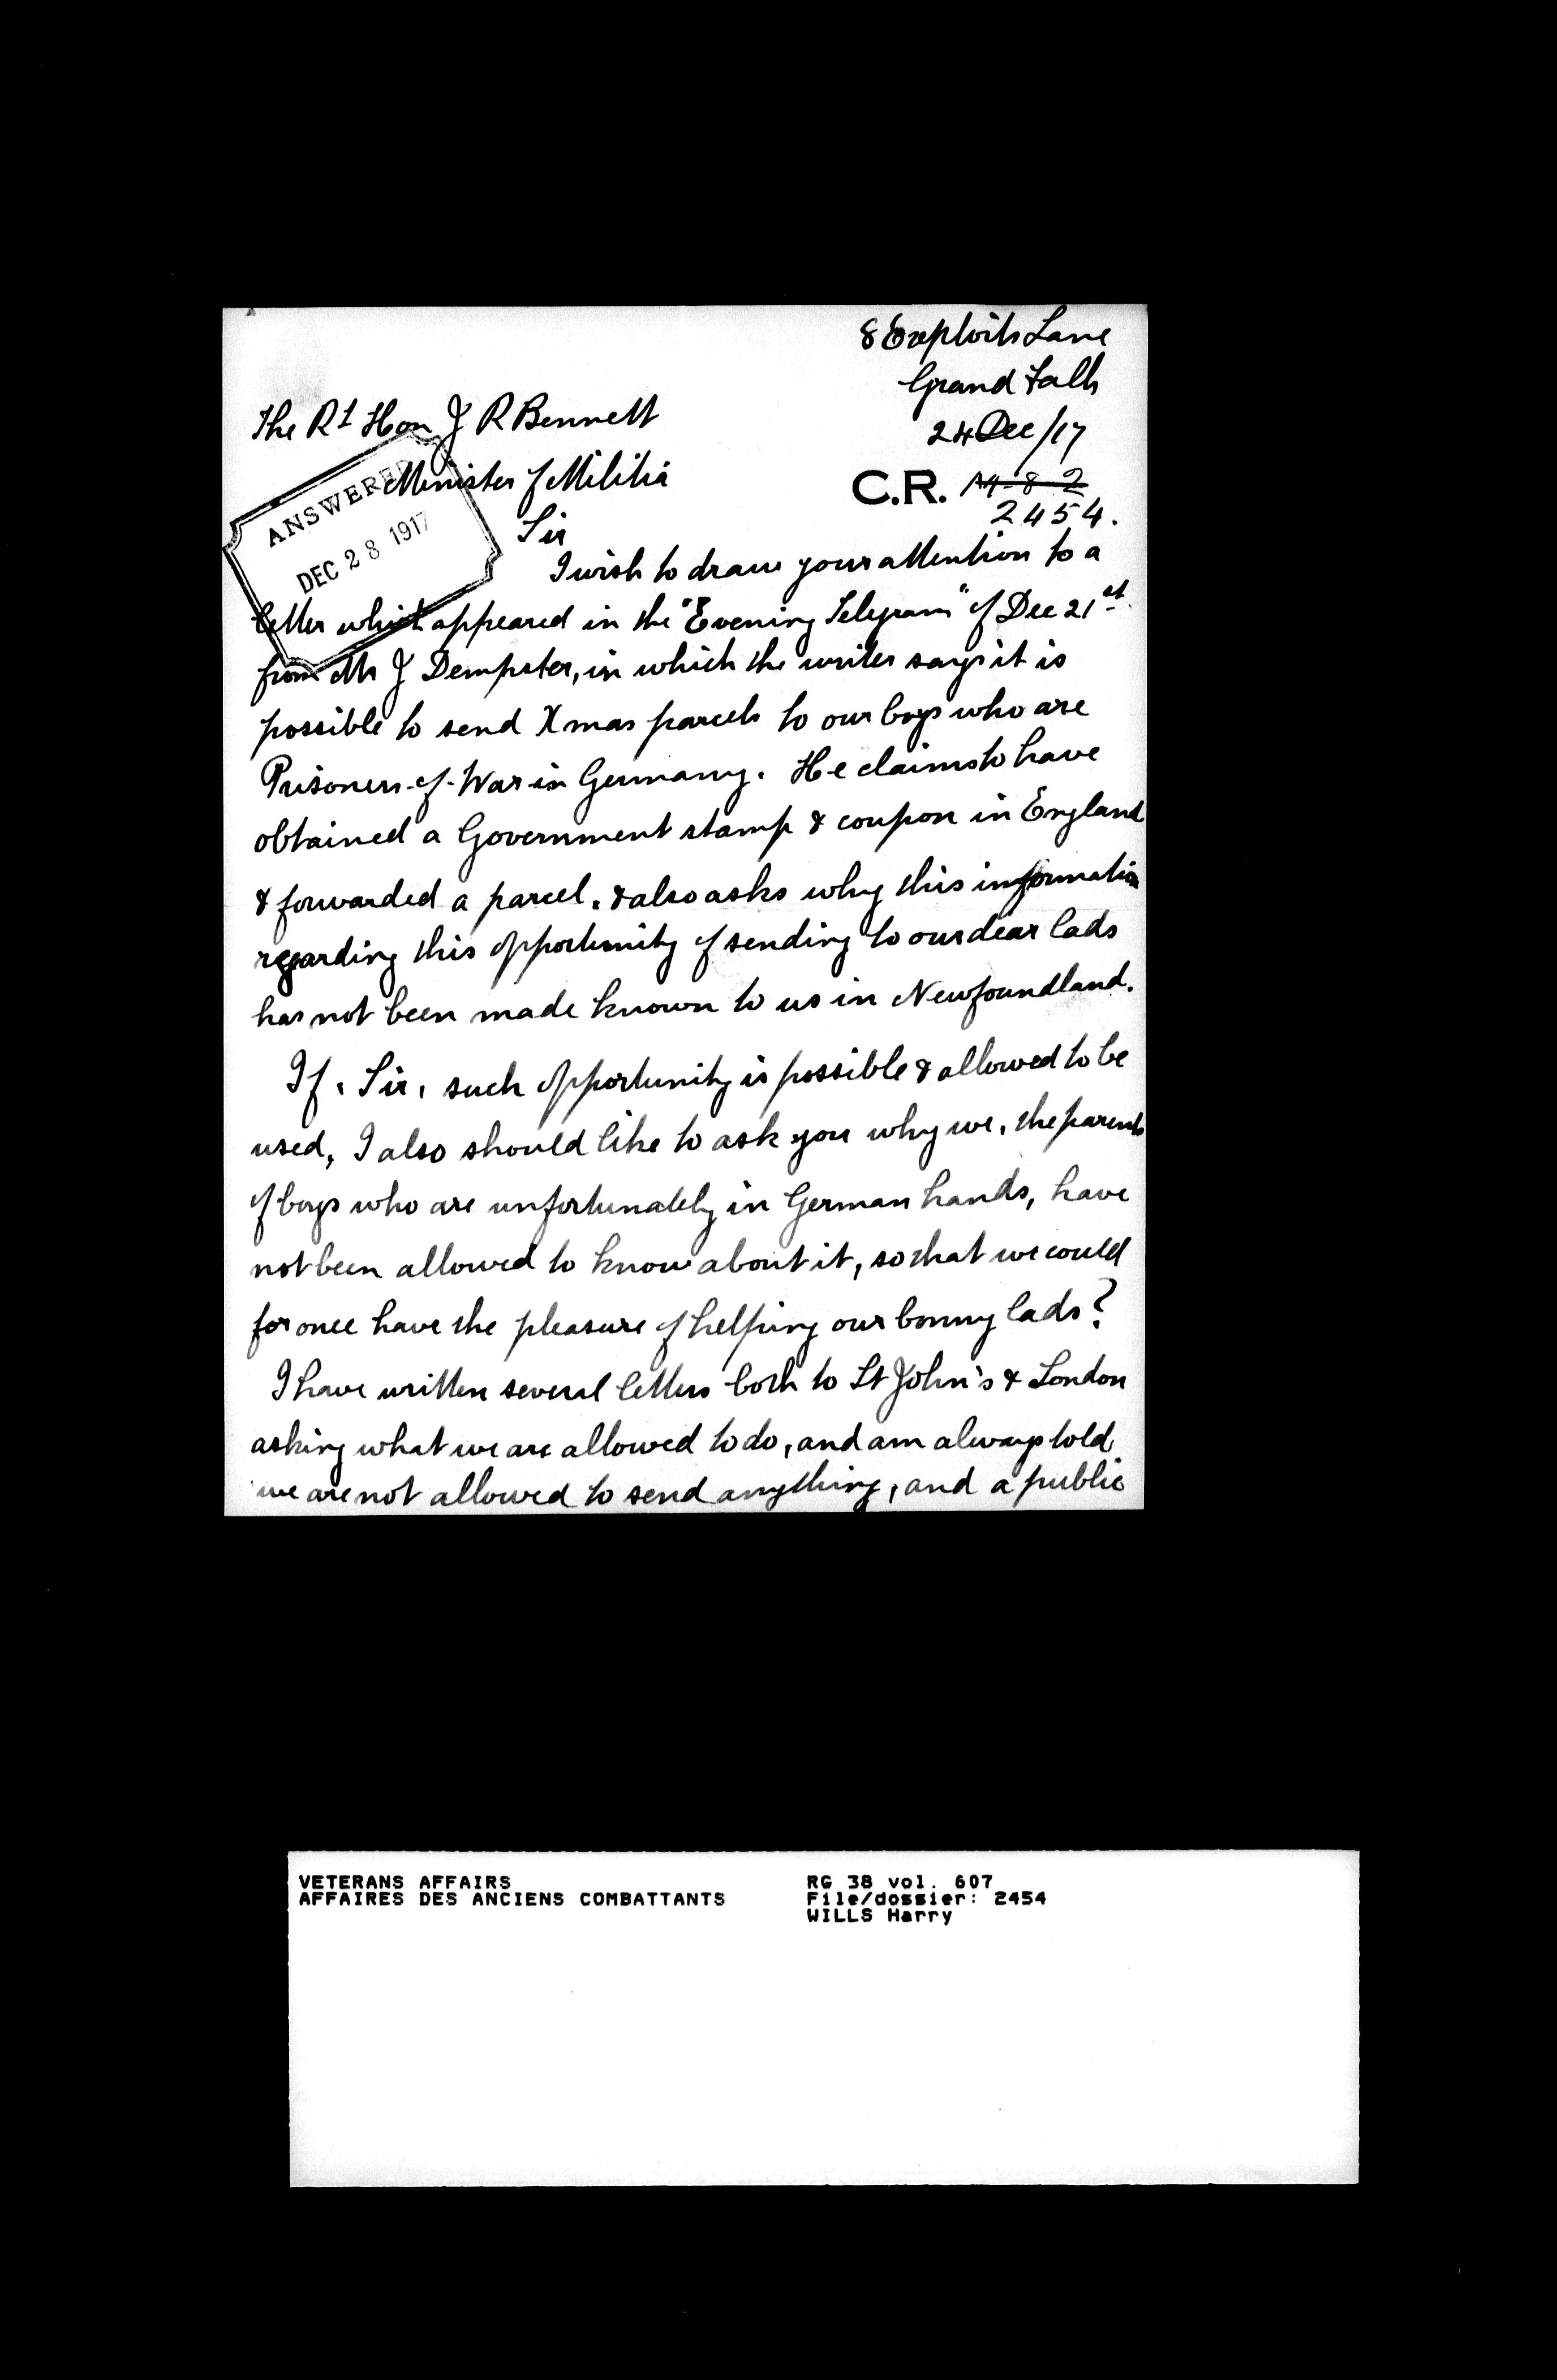 8 Exploits Lane
Grand Falls
24 Dec/17
The Rt Hon J R Bennett
Minister of Militia
C.R.
2454.
ANSWERED
DEC 28 1917
Sir
I wish to draw your attention to a
letter which appeared in the "Evening Telegram" of Dec 21st
from Mr J Dempster, in which the writer says it is
possible to send Xmas parcels to our boys who are
Prisoners-of-War in Germany. He claims to have
obtained a Government stamp & coupon in England
& forwarded a parcel, & also asks why this information
regarding this opportunity of sending to our dear lads
has not been made known to us in Newfoundland.
If, Sir, such opportunity is possible & allowed to be
used, I also should like to ask you why we, the parents
of boys who are unfortunately in German hands, have
not been allowed to know about it, so that we could
for once have the pleasure of helping our bonny lads?
I have written several letters both to St John's & London
asking what we are allowed to do, and am always told
we are not allowed to send anything, and a public
VETERANS AFFAIRS
AFFAIRES DES ANCIENS COMBATTANTS
RG 38 vol. 607
File/dossier: 2454
WILLS Harry